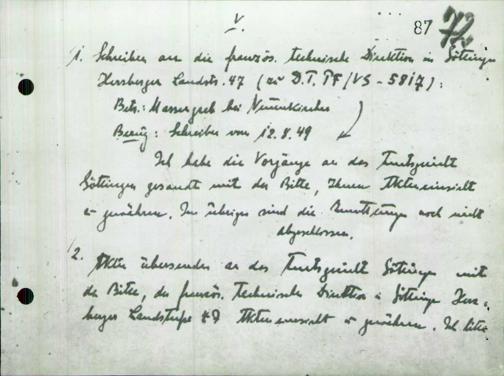 V.
87 72
1. Schreiben an die französ. technische Direktion in Göttingen
Herzberger Landstr. 47 (zu D.T. PF/VS - 5817):
Betr.: Massengrab bei Neunkirchen
Bezug: Schreiben vom 12.8.49
Ich habe die Vorgänge an das Amtsgericht
Göttingen gesandt mit der Bitte, Ihnen Akteneinsicht
zu gewähren. Im übrigen sind die Ermittlungen noch nicht
abgeschlossen.
2. Akten übersenden an das Amtsgericht Göttingen mit
der Bitte, der französ. technischen Direktion in Göttingen Herz-
berger Landstraße 47 Akteneinsicht zu gewähren. Ich bitte